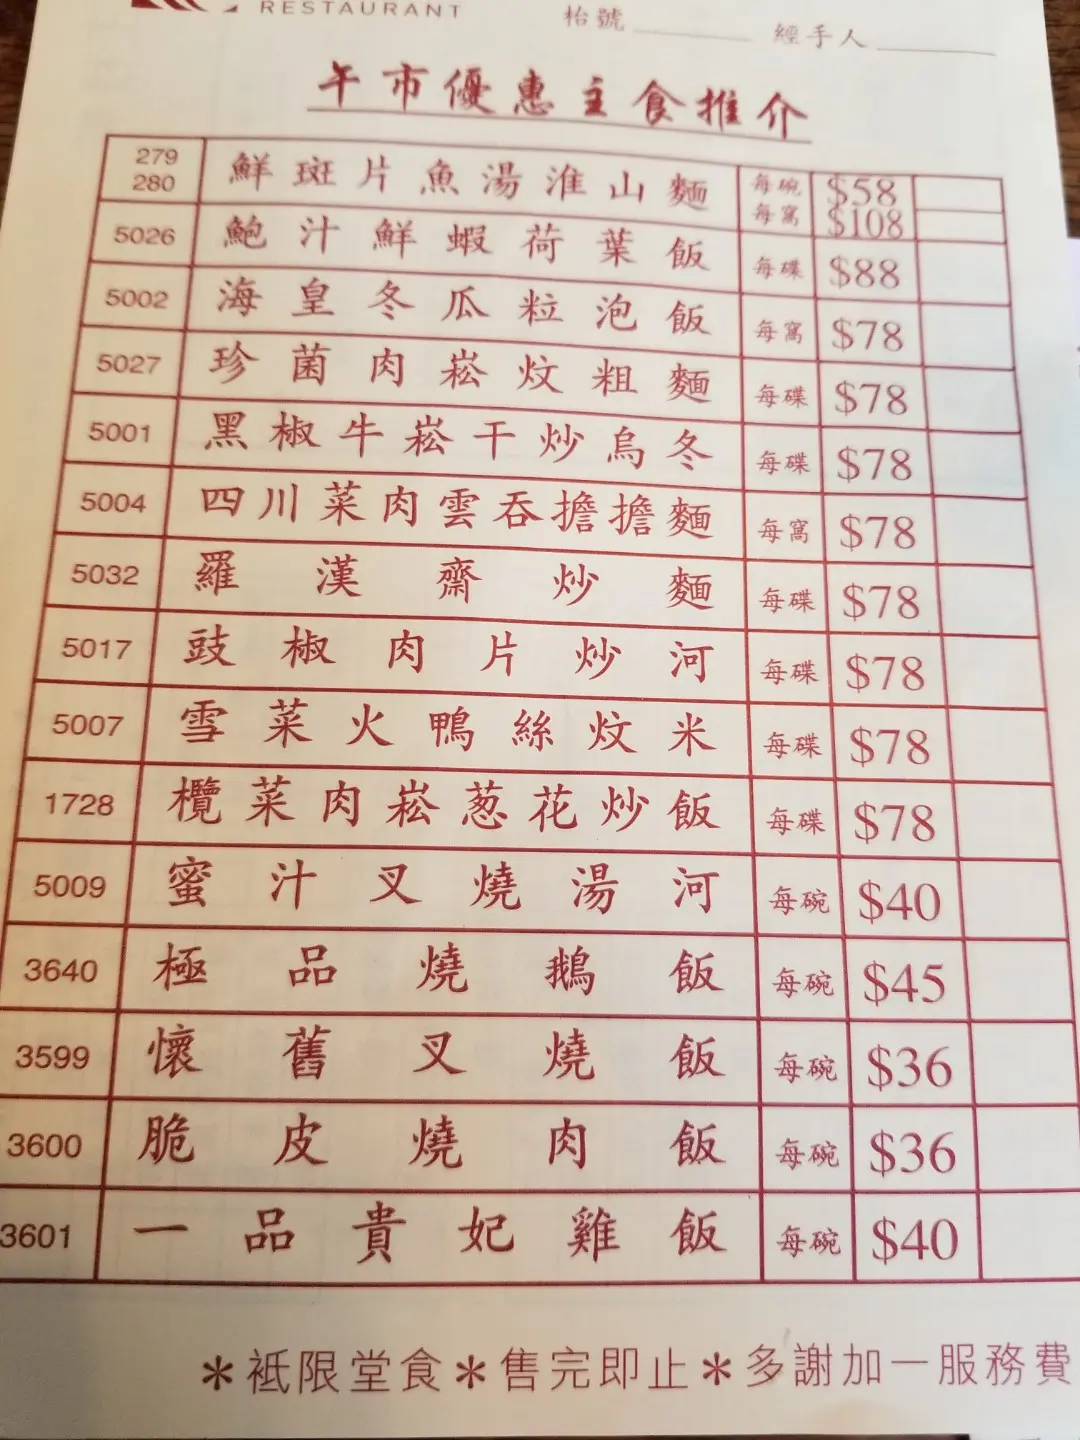 RESTAURANT
枱號 經手人
午市優惠主食推介
279 280 鮮斑片魚湯淮山麵 每碗 $58 每窩 $108
5026 鮑汁鮮蝦荷葉飯 每碟 $88
5002 海皇冬瓜粒泡飯 每窩 $78
5027 珍菌肉崧炆粗麵 每碟 $78
5001 黑椒牛崧干炒烏冬 每碟 $78
5004 四川菜肉雲吞擔擔麵 每窩 $78
5032 羅漢齋炒麵 每碟 $78
5017 豉椒肉片炒河 每碟 $78
5007 雪菜火鴨絲炆米 每碟 $78
1728 欖菜肉崧葱花炒飯 每碟 $78
5009 蜜汁叉燒湯河 每碗 $40
3640 極品燒鵝飯 每碗 $45
3599 懷舊叉燒飯 每碗 $36
3600 脆皮燒肉飯 每碗 $36
3601 一品貴妃雞飯 每碗 $40
*祗限堂食*售完即止*多謝加一服務費